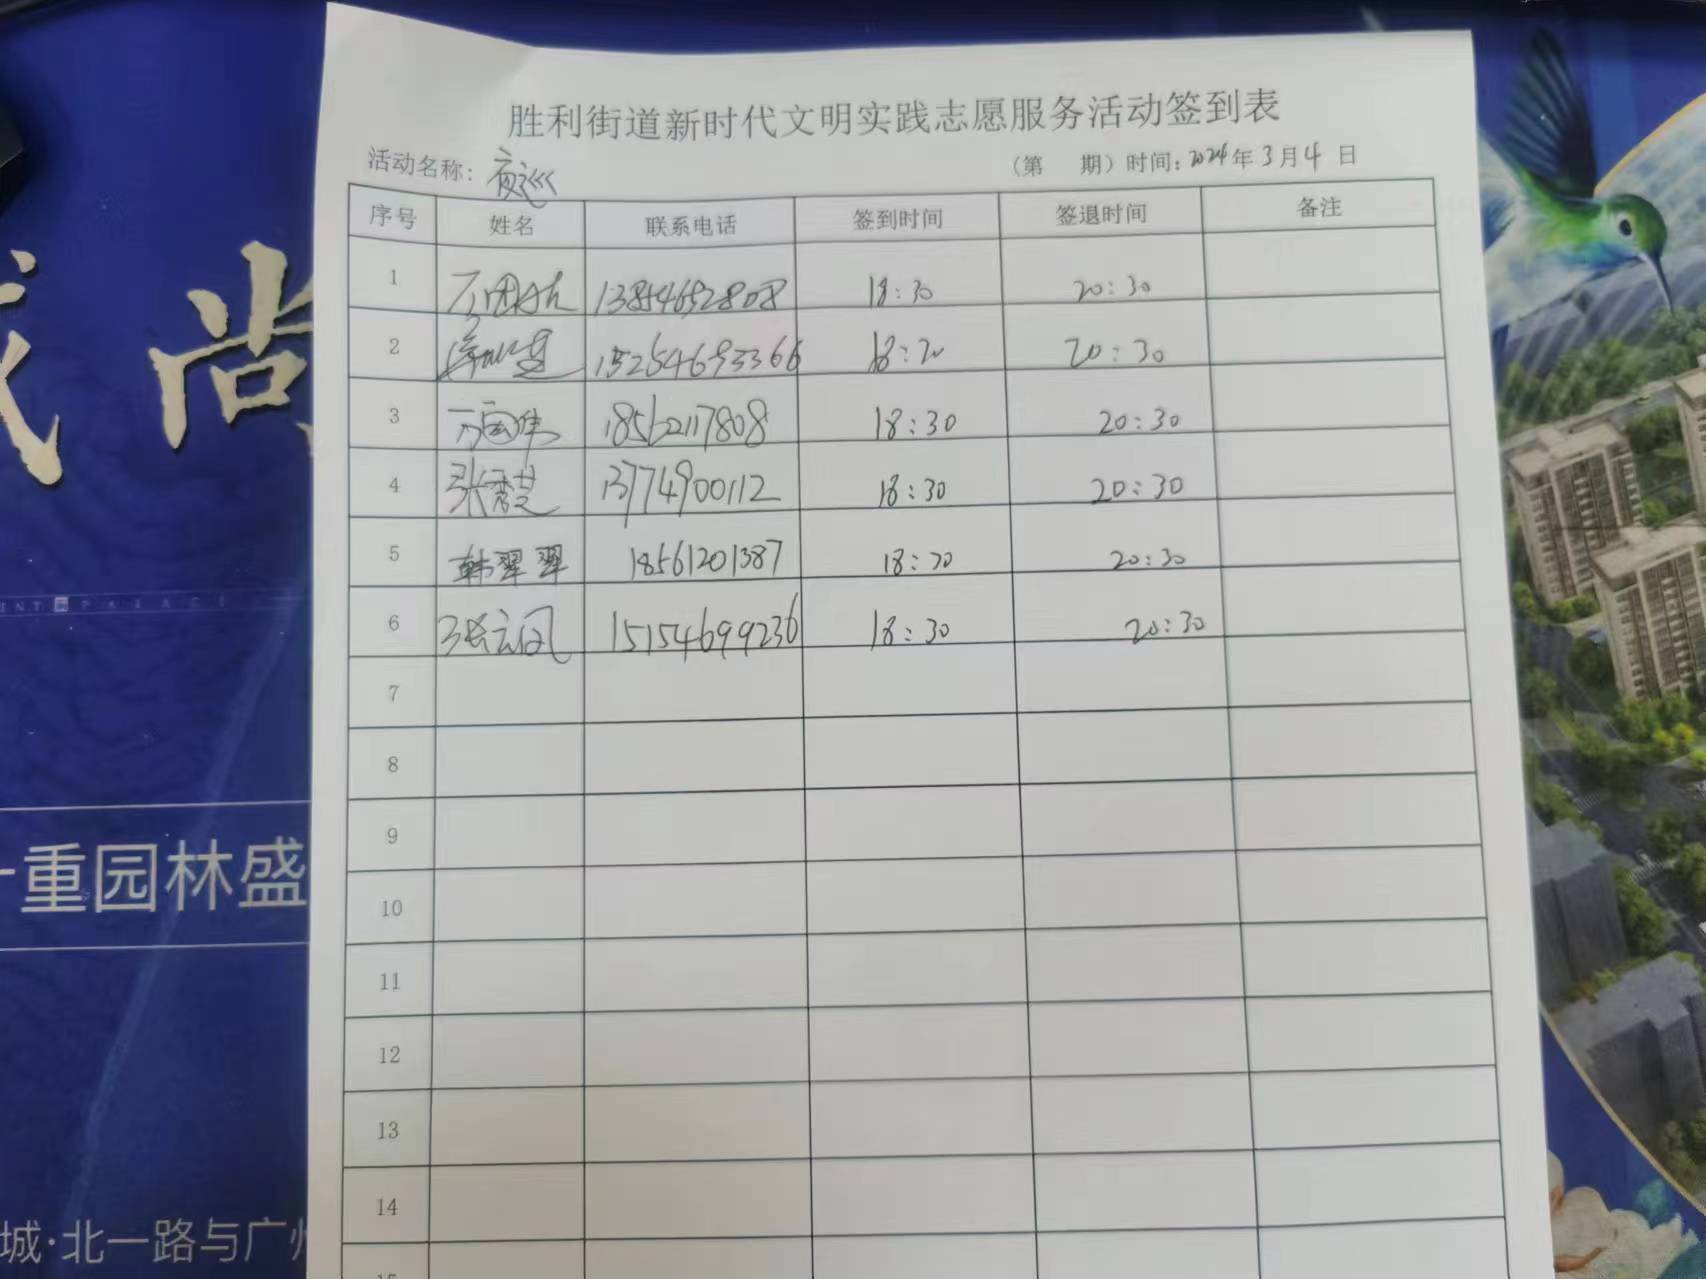 胜利街道新时代文明实践志愿服务活动签到表
活动名称：夜巡
（第 期）时间：2024年3月4日
序号 姓名 联系电话 签到时间 签退时间 备注
1 13854692808 18:30 20:30
2 15264693366 18:30 20:30
3 万国伟 18562117808 18:30 20:30
4 张秀芝 13774900112 18:30 20:30
5 韩翠翠 18561201387 18:30 20:30
6 张立凤 15154699236 18:30 20:30
7
8
9
10
11
12
13
14
15
尚
重园林盛
城·北一路与广州